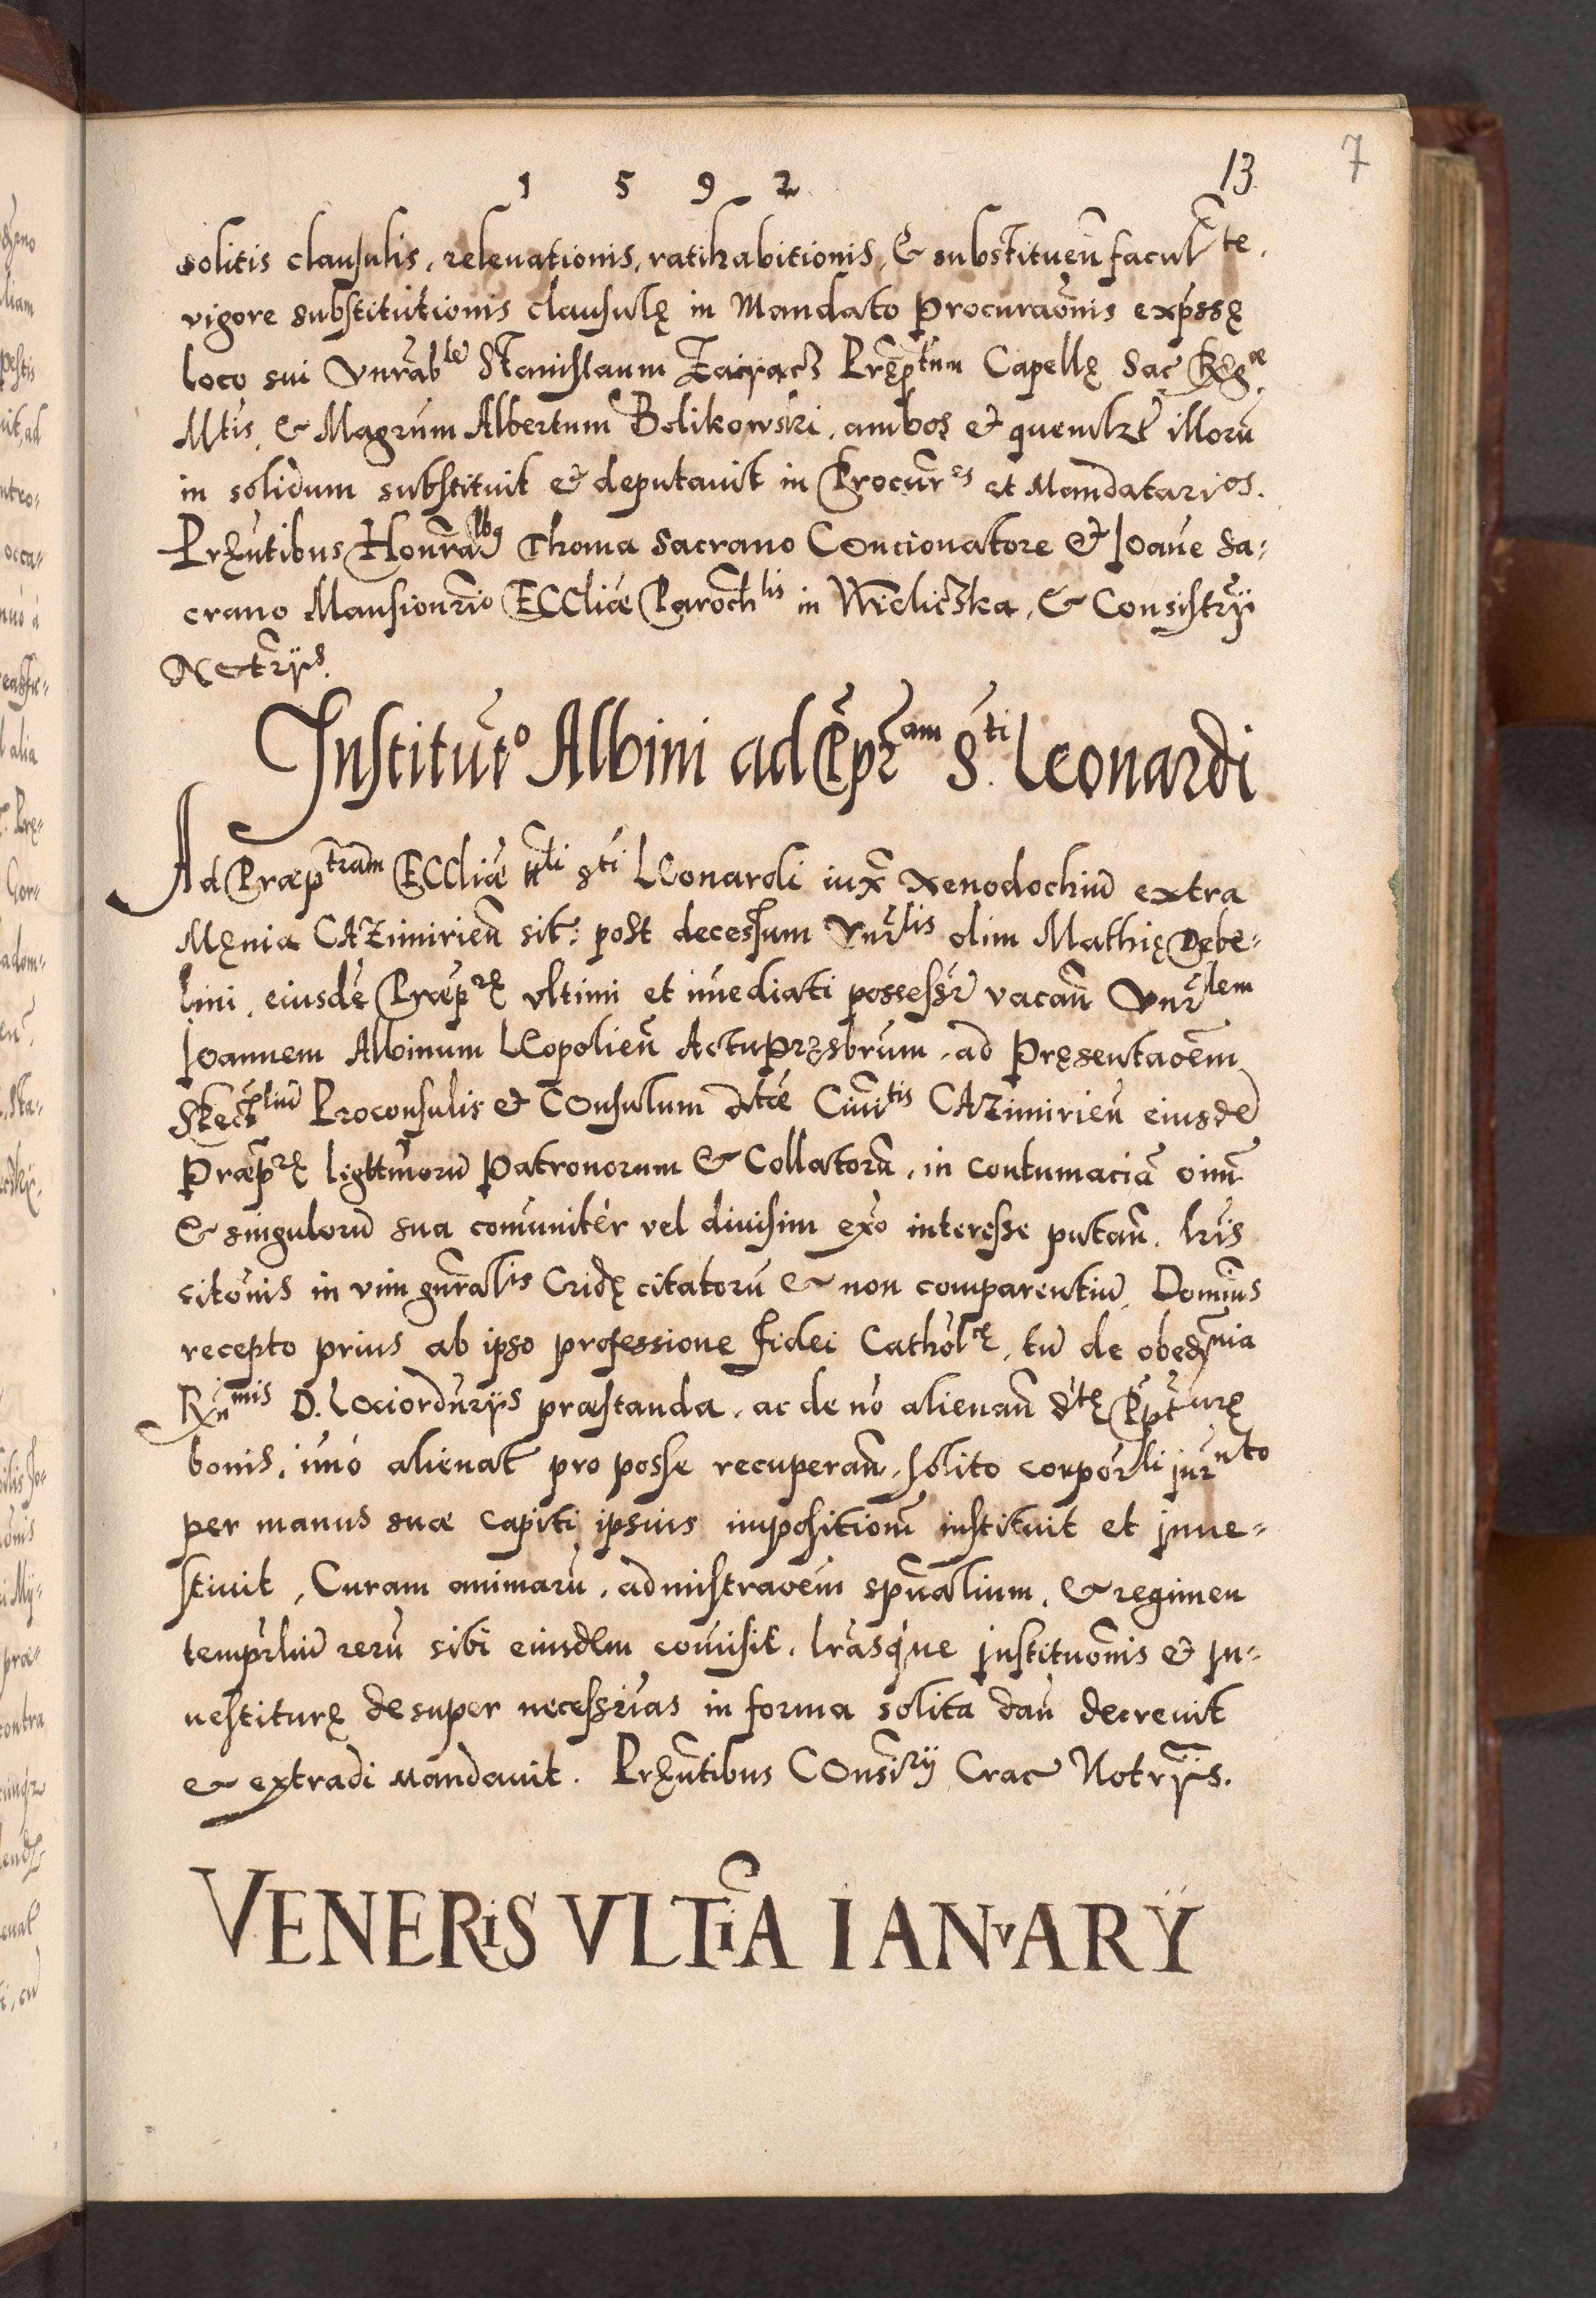 1 5 9 2
13
7
solitis clausulis, releuationis, ratihabitionis, & substituen̄ facul̄te.
vigore substitutionis clausulę in Mandato Procuraõnis exp̄ssę
loco sui Vnrabłe Stanislaum Zaiącz Pręp̄tum Capellę Sac̨ Rg̨æ
Mtis, & Magrum Albertum Bolikowski, ambos et quemlꝫt illorū
in solidum substituit et deputauit in Procur̄es et Mandatarios.
Prꝫntibus Honrałbꝫ Thoma Sacrano Concionatore et Joane Sa:
crano Mansionr̄io ECCliæ Parochlis in Wieliczka, & Consistr̄ij
Notr̄ijs.
Institut̄o Albini ad P̄pr̄am S.ti Leonardi
Ad Præptram ECCliæ tli sti LEonardi iux̄ Xenodochiū extra
Męnia CAZimirien̄ sit: post decessum Vnr̄lis olim Mathię Debe-
lini, eiusdē Præp̄rę vltimi et im̄ediati possessr̄ vacan̄ Vnr̄lem
Joannem Albinum LEopolien̄ Actuprꝫsbrum, ad Pręsentaõem
Spectꝫliū Proconsulis et COnsulum dtæ Ciuitis CAZimirien̄ eiusdē
Præp̄rę ligttmorū Patronorum & Collatorū, in contumaciā oim̄
& singulorū sua com̄uniter vel diuisim exõ interesse putan̄. lris
citõnis in vim gnralis Cridę citatorū & non comparentiū, Dominus
recepto prius ab ipso professione fidei Catholcę, tū de obednia
Rm̄mis D. LOciordnrijs præstanda, ac de nō alienan̄ dtę Ppturę
bonis, im̄o alienat̄ pro posse recuperan̄, solito corporli jurnto
per manus suæ capiti ipsius impositionē instituit et inue-
stiuit, Curam animarū, admistraõem spūalium, & regimen
temprliū rerū sibi eiusdem com̄isit, lrasque institutõnis et in-
uestiturę desuper necessrias in forma solita dan̄ decreuit
& extradi mandauit. Prꝫntibus COnsirij Crac̄ Notr̄ijs.
VENERIS VLTIA IANVARY